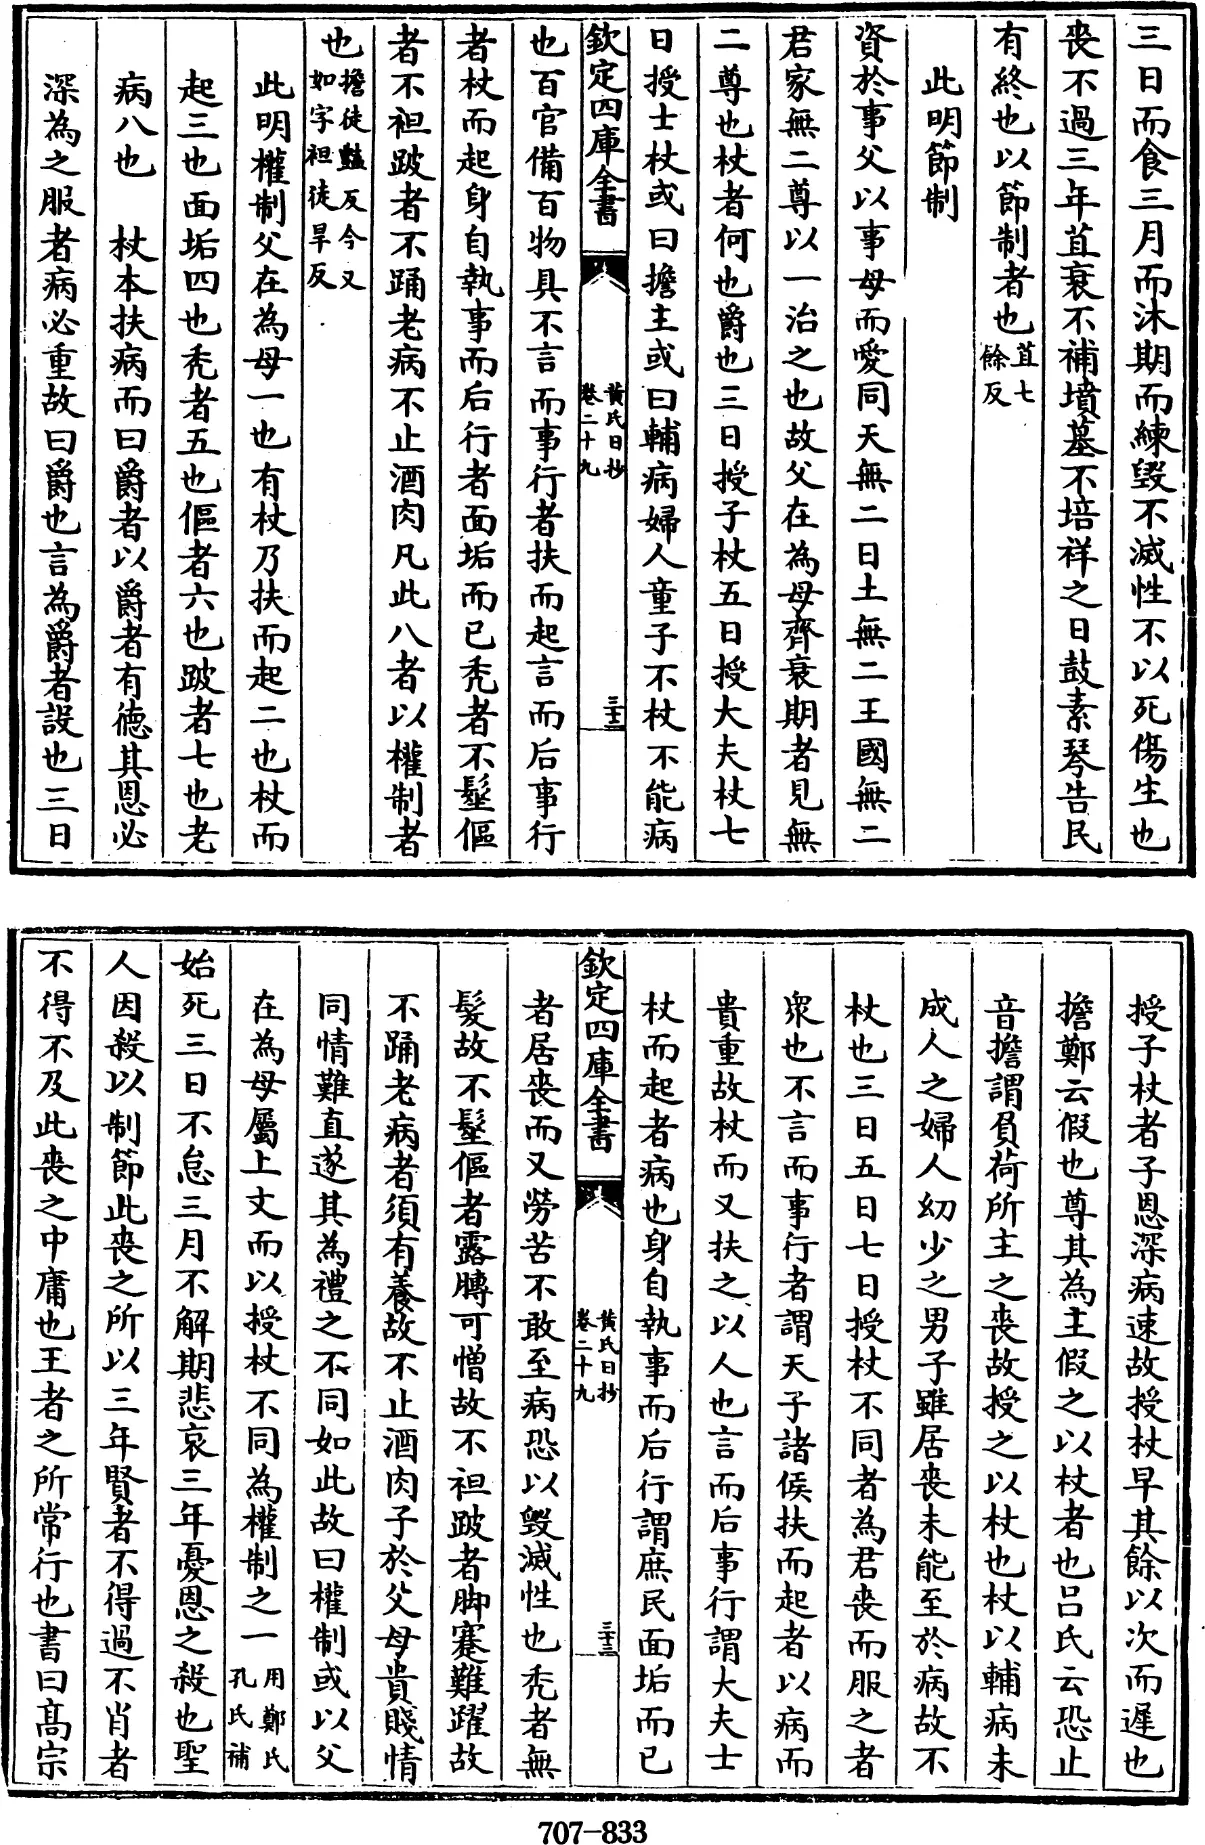 三日而食三月而沐期而練毀不滅性不以死傷生也
喪不過三年苴衰不補墳墓不培祥之日鼓素琴告民
有終也以節制者也苴七餘反
此明節制
資於事父以事母而愛同天無二日土無二王國無二
君家無二尊以一治之也故父在為母齊衰期者見無
二尊也杖者何也爵也三日授子杖五日授大夫杖七
日授士杖或曰擔主或曰輔病婦人童子不杖不能病
欽定四庫全書
黃氏日抄
卷二十九
三十二
也百官備百物具不言而事行者扶而起言而后事行
者杖而起身自執事而后行者面垢而已禿者不髽傴
者不袒跛者不踊老病不止酒肉凡此八者以權制者
也擔徒豔反今又如字袒徒旱反
此明權制父在為母一也有杖乃扶而起二也杖而
起三也面垢四也禿者五也傴者六也跛者七也老
病八也 杖本扶病而曰爵者以爵者有德其恩必
深為之服者病必重故曰爵也言為爵者設也三日
授子杖者子恩深病速故授杖早其餘以次而遲也
擔鄭云假也尊其為主假之以杖者也呂氏云恐止
音擔謂負荷所主之喪故授之以杖也杖以輔病未
成人之婦人幼少之男子雖居喪未能至於病故不
杖也三日五日七日授杖不同者為君喪而服之者
衆也不言而事行者謂天子諸侯扶而起者以病而
貴重故杖而又扶之以人也言而后事行謂大夫士
杖而起者病也身自執事而后行謂庶民面垢而已
欽定四庫全書
黃氏日抄
卷二十九
三十三
者居喪而又勞苦不敢至病恐以毀滅性也禿者無
髮故不髽傴者露膊可憎故不袒跛者脚蹇難躍故
不踊老病者須有養故不止酒肉子於父母貴賤情
同情難直遂其為禮之不同如此故曰權制或以父
在為母屬上文而以授杖不同為權制之一用鄭氏孔氏補
始死三日不怠三月不解期悲哀三年憂恩之殺也聖
人因殺以制節此喪之所以三年賢者不得過不肖者
不得不及此喪之中庸也王者之所常行也書曰高宗
707-833